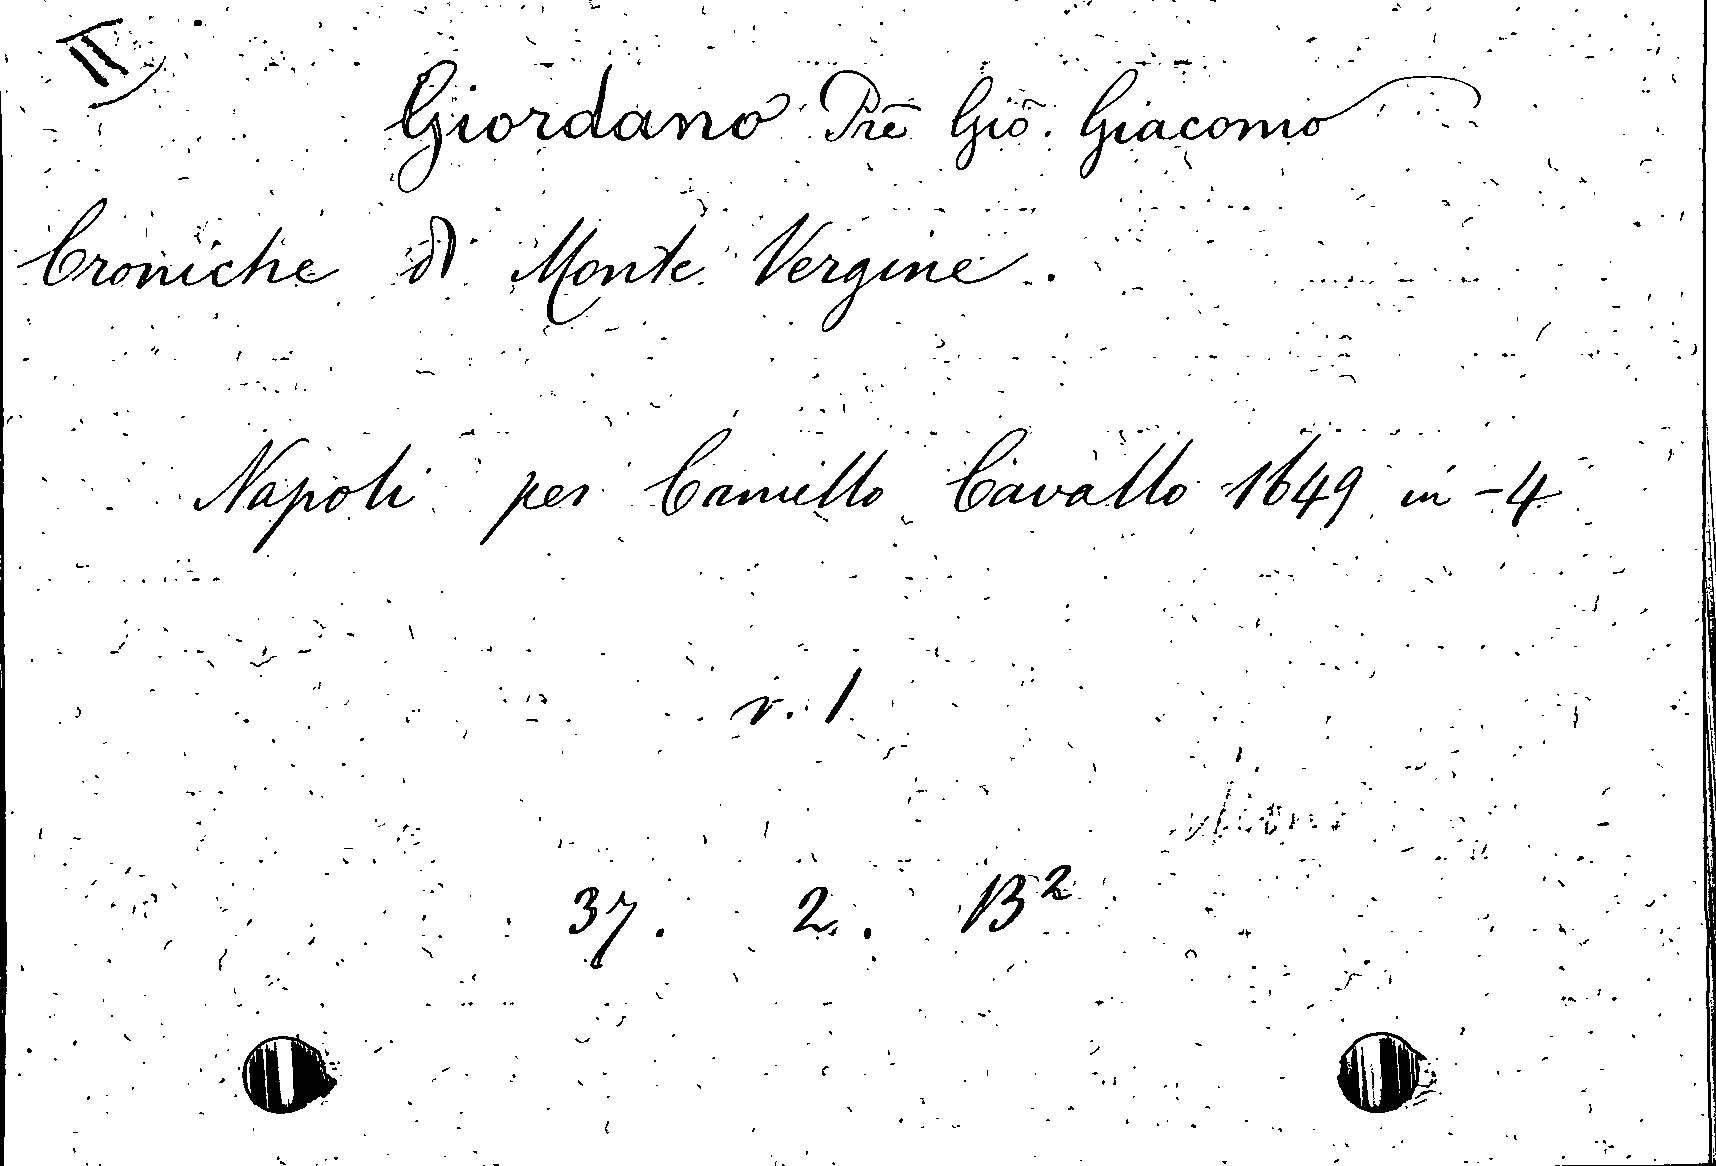 II
Giordano Prē Giō. Giacomo
Croniche di Monte Vergine.
Napoli per Camillo Cavallo 1649 in-4
v. 1
37. 2. B²